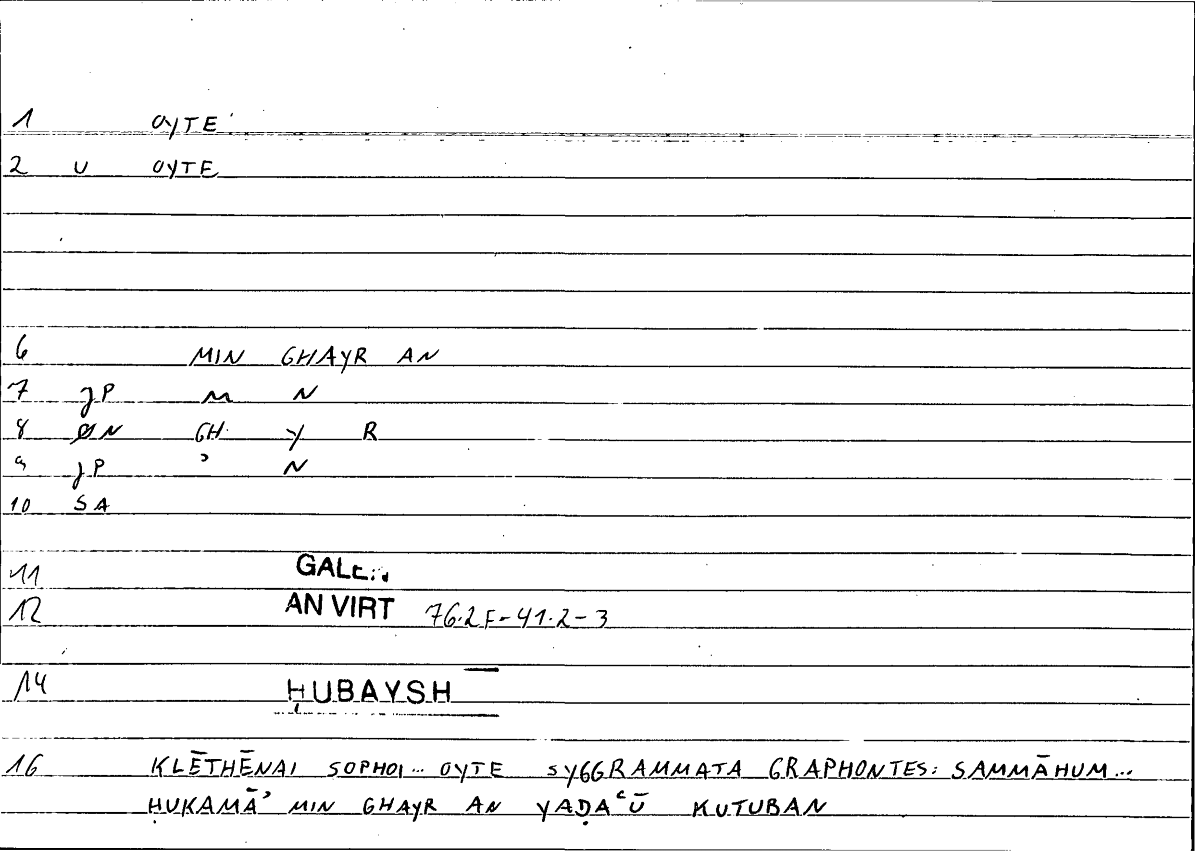 1 OYTE
2 U OYTE
6 MIN GHAYR AN
7 JP M N
8 ØN GH Y R
9 JP ʾ N
10 SA
11 GALEN
12 AN VIRT 76.2F-41.2-3
14 ḤUBAYSH
16 KLĒTHĒNAI SOPHOI... OYTE SYGGRAMMATA GRAPHONTES: SAMMĀHUM...
ḤUKAMĀʾ MIN GHAYR AN YAḌAʿŪ KUTUBAN